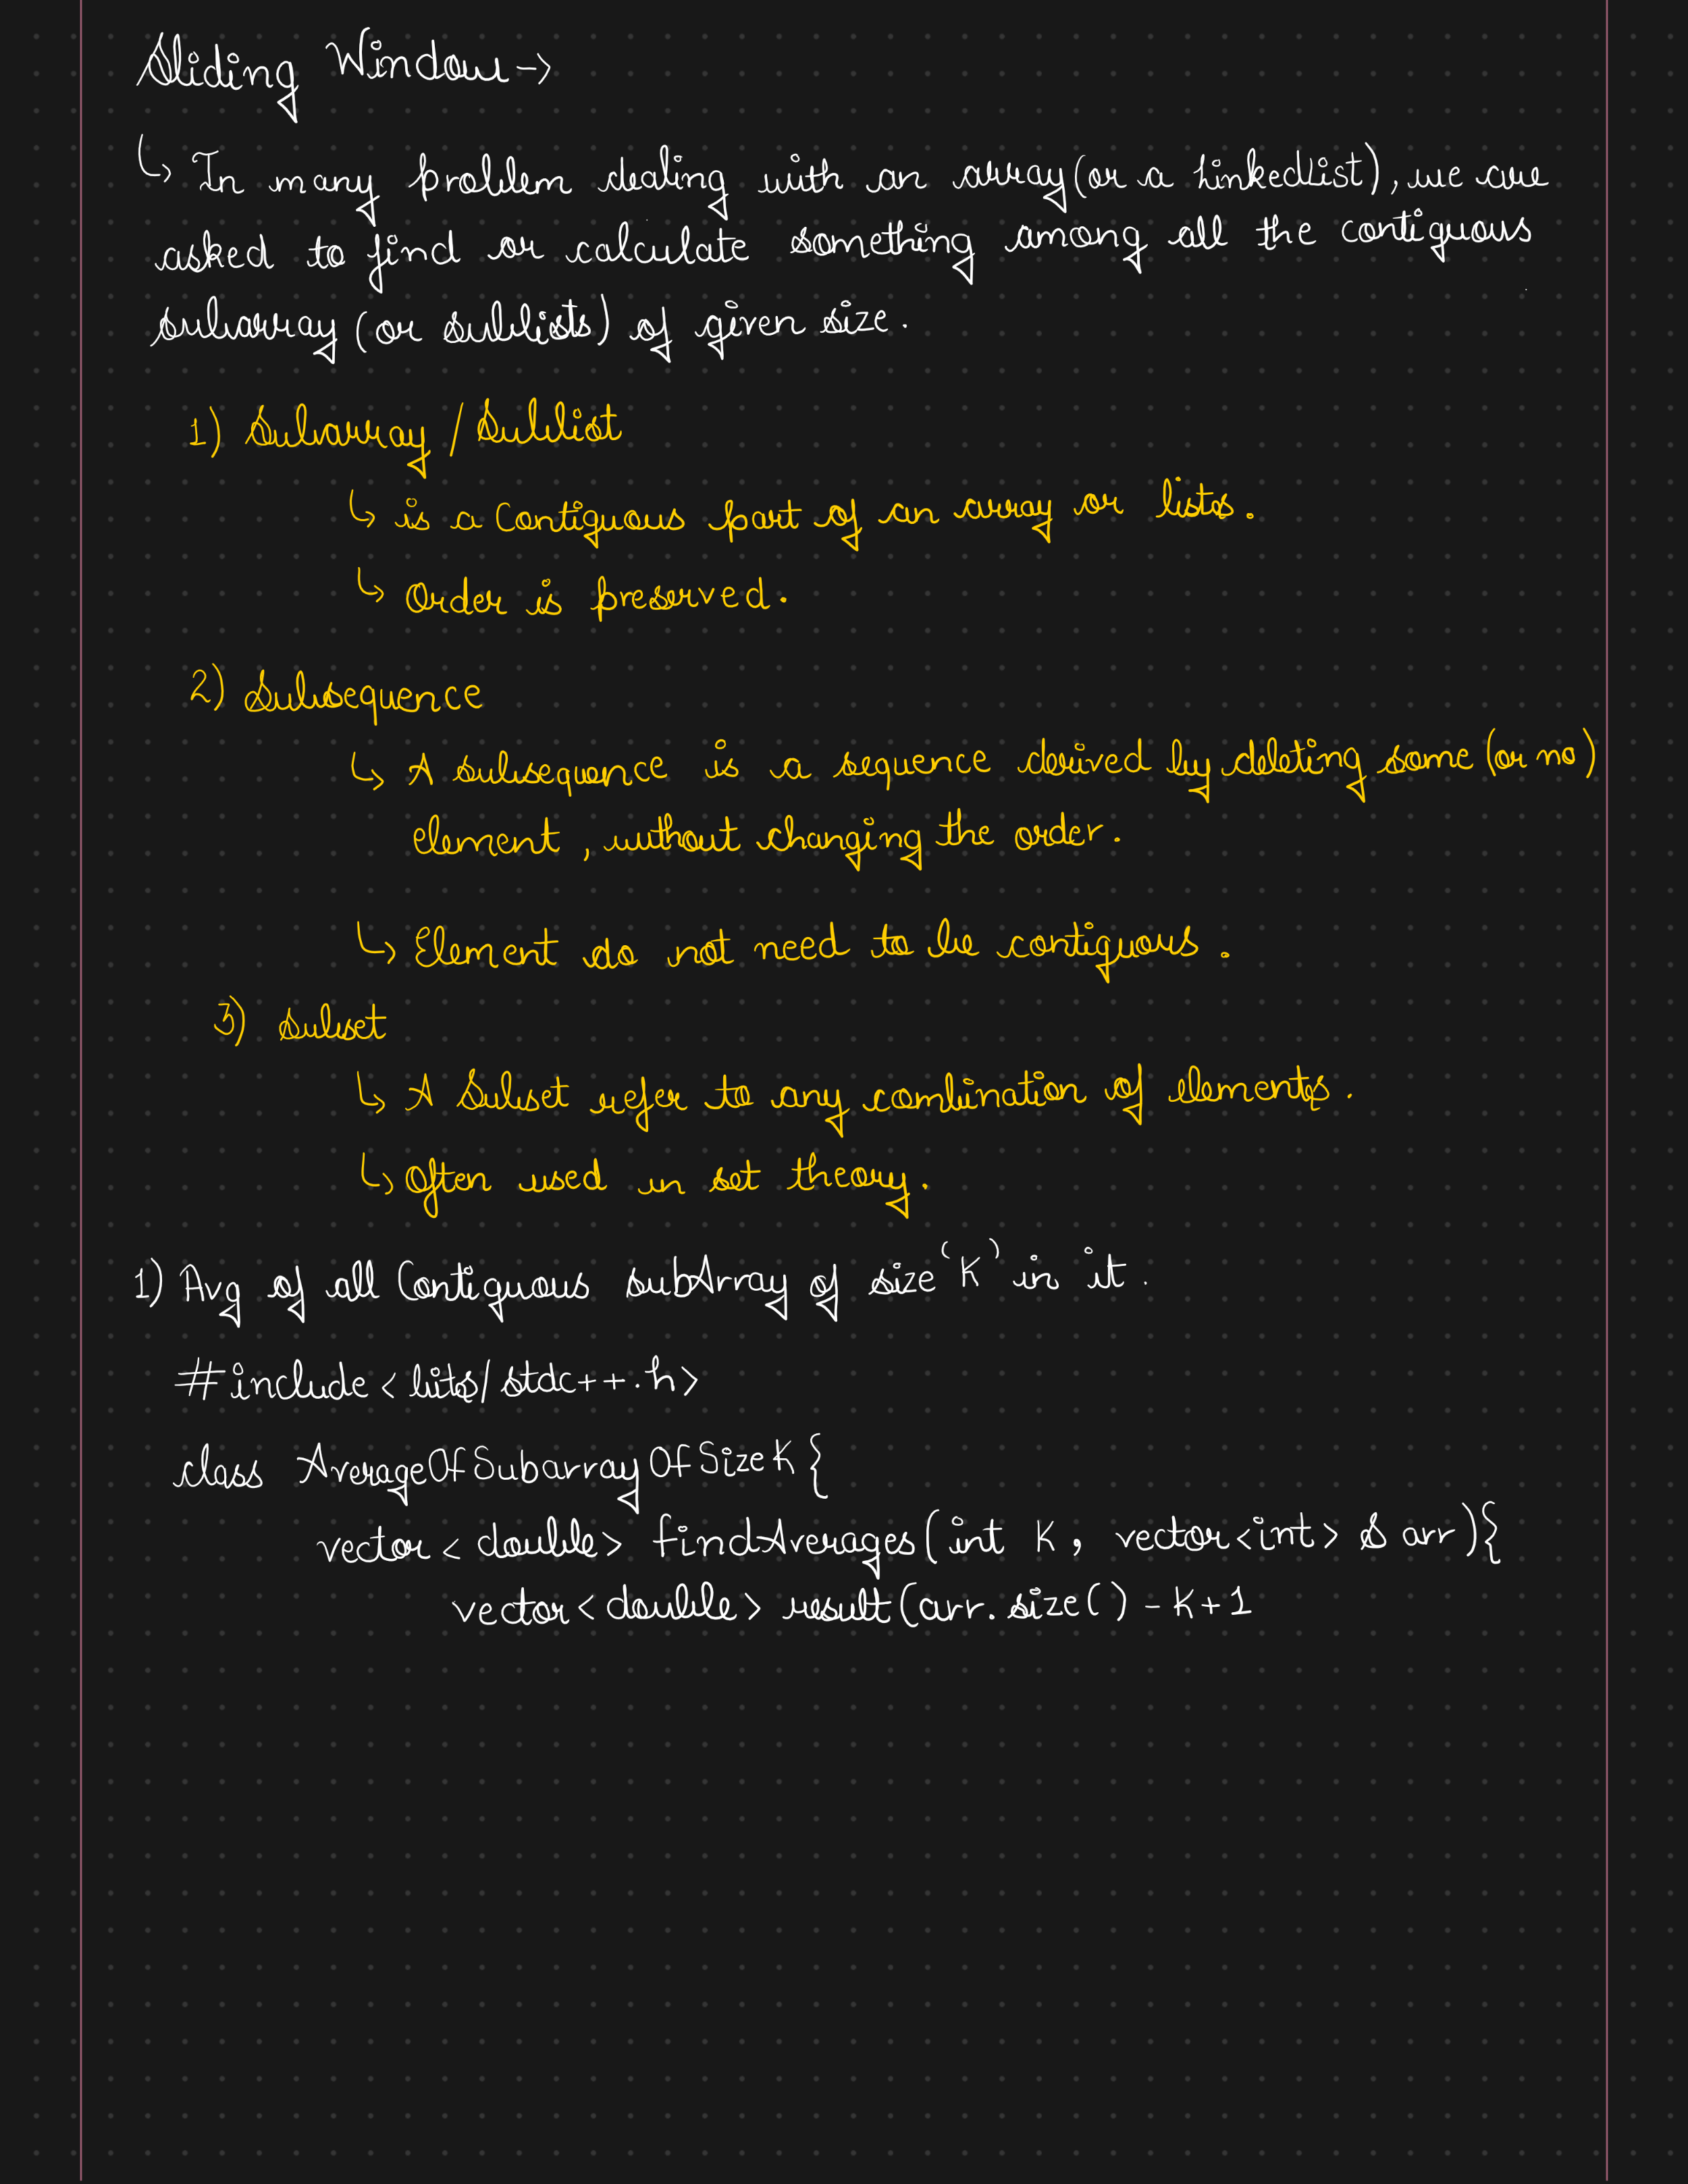 Sliding Window →
↳ In many problem dealing with an array (or a LinkedList), we are
asked to find or calculate something among all the contiguous
subarray (or sublists) of given size.
1) Subarray / Sublist
↳ is a Contiguous part of an array or lists.
↳ Order is preserved.
2) Subsequence
↳ A subsequence is a sequence derived by deleting some (or no)
element, without changing the order.
↳ Element do not need to be contiguous.
3) Subset
↳ A Subset refer to any combination of elements.
↳ Often used in set theory.
1) Avg of all Contiguous subArray of size 'K' in it.
#include <bits/stdc++.h>
class AverageOfSubarrayOfSizeK {
vector<double> findAverages(int K, vector<int> & arr){
vector<double> result(arr.size() - K + 1